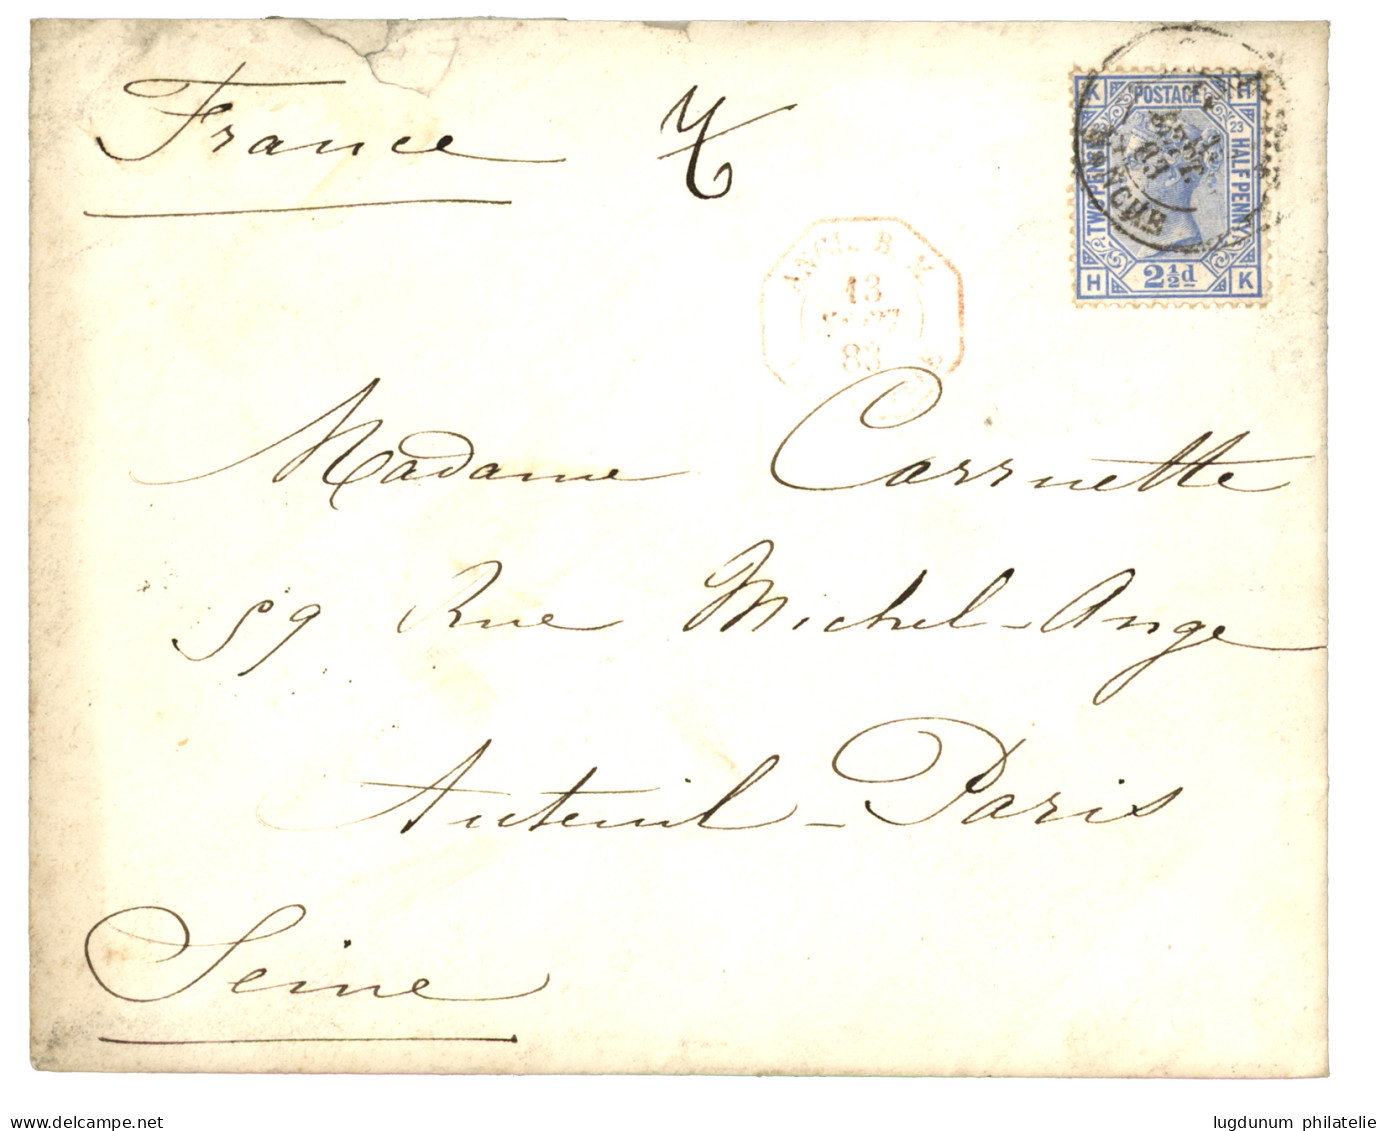 France
K POSTAGE H
23
TWO PENCE HALF PENNY
H 2½d K
MANCHE
83
ANGL. B. M.
13
83
Madame Carruette
59 Rue Michel-Ange
Auteuil-Paris
Seine
www.delcampe.net
lugdunum philatelie